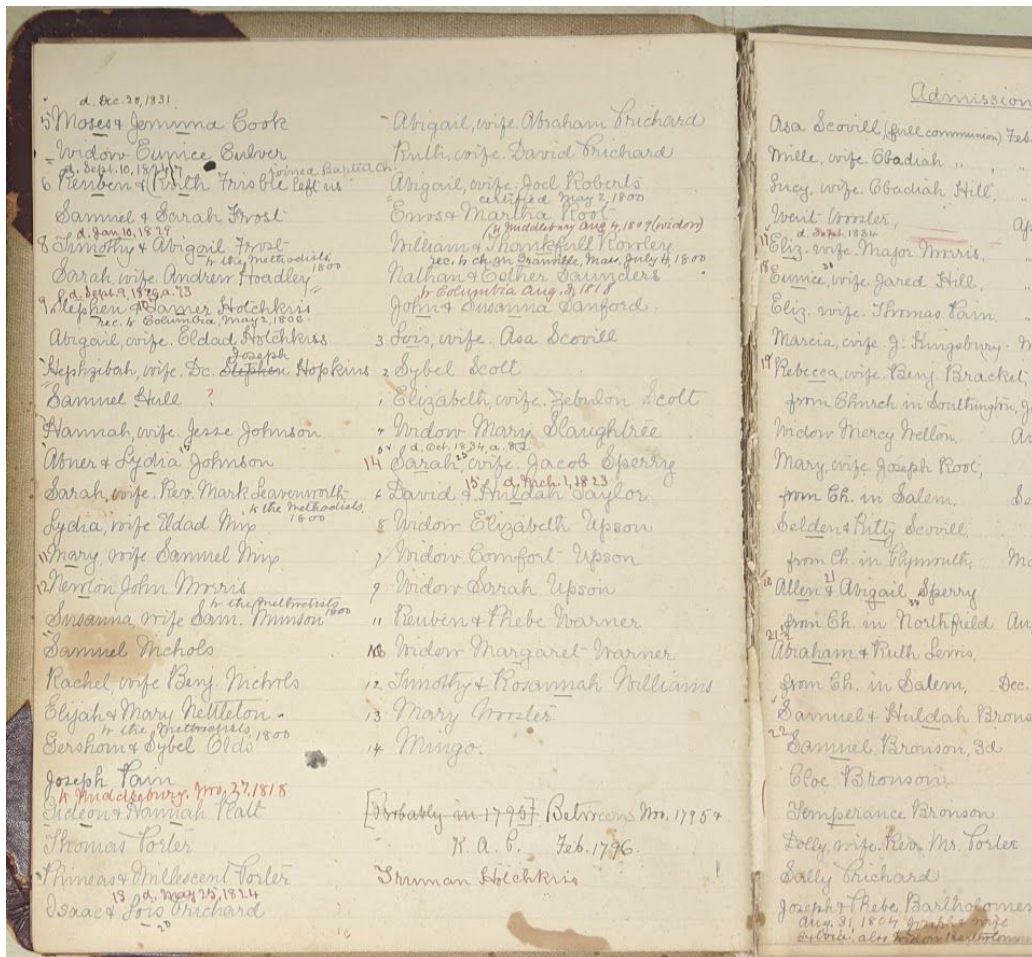 d. Dec. 20, 1831.
5 Moses & Jemima Cook
Widow Eunice Culver
d. Sept. 10, 1824
joined Baptist Ch.
6 Reuben & (Ruth Frisbie left us
Samuel & Sarah Frost
d. Jan. 10, 1829
8 Timothy & Abigail Frost
to the Methodists 1800
Sarah, wife. Andrew Hoadley
d. Sept. 9, 1826, a. 73
9 Stephen & Tamer Hotchkiss
rec. to Columbia, May 2, 1806.
Abigail, wife. Eldad Hotchkiss
Joseph
Hephzibah, wife. Dc. Stephen Hopkins
Samuel Hull ?
Hannah, wife. Jesse Johnson
15
Abner & Lydia Johnson
Sarah, wife. Rev. Mark Leavenworth
to the Methodists, 1800
Lydia, wife Eldad Mix
11 Mary, wife Samuel Mix
12 Newton John Morris
to the Methodists 1800
Susanna, wife Sam. Munson
Samuel Nichols
Rachel, wife Benj. Nichols
Elijah & Mary Nettleton
to the Methodists, 1800
Gershom & Sybel Olds
Joseph Pain
to Middlebury, Nov. 27, 1818
Gideon & Hannah Platt
Thomas Porter
Phineas & Millescent Porter
13 d. May 25, 1824
Isaac & Lois Prichard
20
Abigail, wife. Abraham Prichard
Ruth, wife. David Prichard
Abigail, wife. Joel Roberts
certified May 2, 1800
Enos & Martha Root
to Middlebury Aug 4, 1807 (widow)
William & Thankfull Rowley
rec. to ch. in Granville, Mass, July 4, 1800
Nathan & Esther Saunders
to Columbia Aug. 3, 1818
John & Susanna Sanford
3 Lois, wife. Asa Scovill
2 Sybel Scott
1 Elizabeth, wife. Zebulon Scott
4 Widow Mary Slaughtree
d. Oct. 1834, a. 82
14 Sarah, wife. Jacob Sperry
15 d. Mch. 1, 1823
6 David & Huldah Taylor
8 Widow Elizabeth Upson
7 Widow Comfort Upson
9 Widow Sarah Upson
11 Reuben & Phebe Warner
10 Widow Margaret Warner
12 Timothy & Rosannah Williams
13 Mary Wooster
14 Mingo.
[Probably in 1795] Between Nov. 1795 &
K. A. C. Feb. 1796.
Truman Hotchkiss
Admission
Asa Scovill, (full communion) Feb.
Mille, wife. Obadiah „
Lucy, wife. Obadiah Hill,
Worit Wooster,
d. Sept. 1834
17 Eliz. wife. Major Morris,
18 Eunice, wife. Jared Hill,
Eliz. wife. Thomas Pain.
Marcia, wife J. Kingsbury.
19 Rebecca, wife. Benj. Bracket,
from Church in Southington,
Widow Mercy Welton.
Mary, wife. Joseph Root,
from Ch. in Salem,
Selden & Kitty Scovill
from Ch. in Plymouth,
21
Allen & Abigail Sperry
from Ch. in Northfield
21
Abraham & Ruth Lewis,
from Ch. in Salem, Dec.
Samuel & Huldah Brons
22
Samuel Bronson, 3d
Cloe Bronson
Temperance Bronson
Dolly, wife. Rev. Mr. Porter
Sally Prichard
Joseph & Phebe Bartholomew
Aug. 31, 1804 Joseph & wife
Sylvia, also widow Bartholom